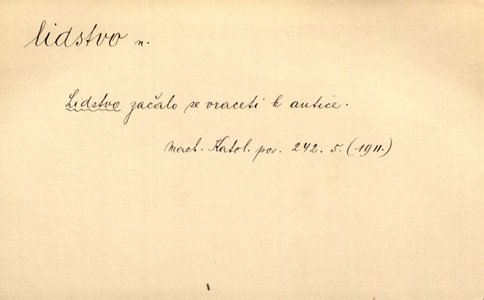 lidstvo n.
Lidstvo začalo se vraceti k antice.
Mach. Katol. pov. 242. 5. (1911.)